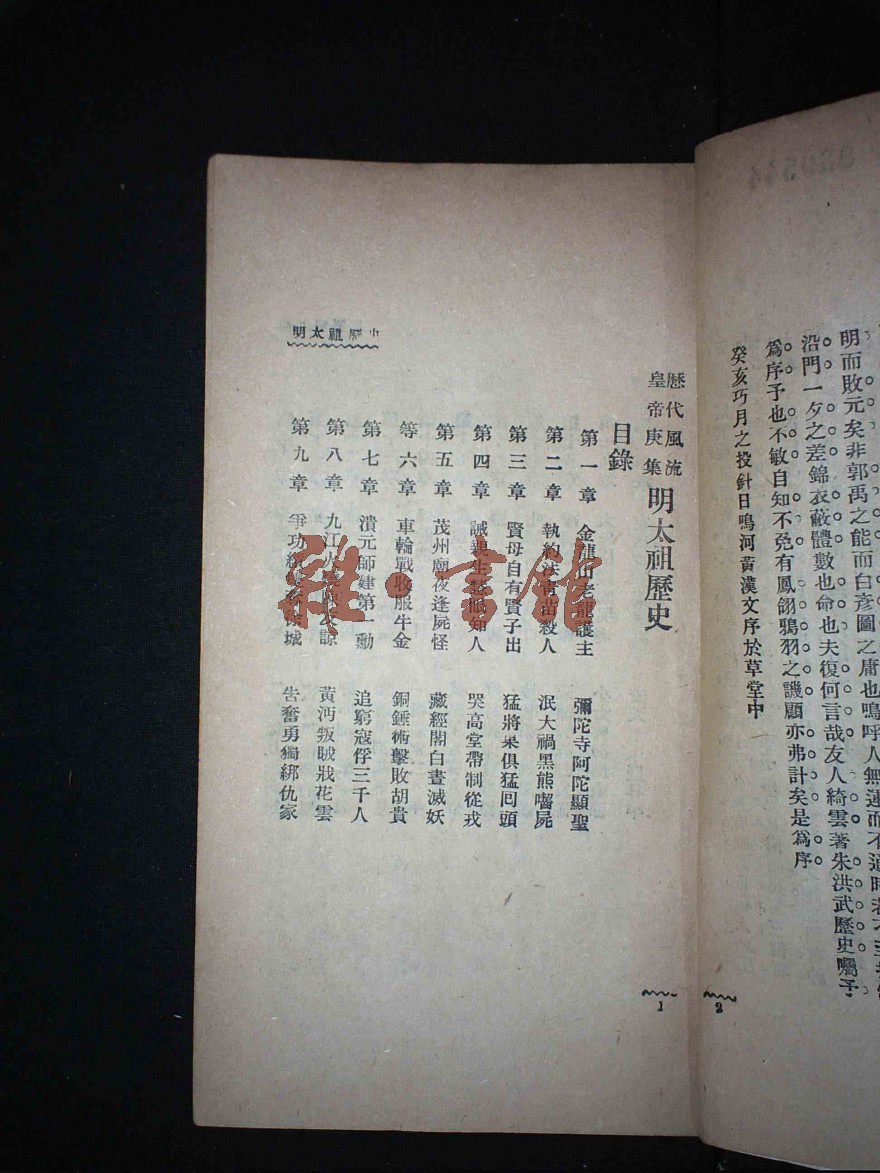 明而敗元矣非郭禹之能而白彥圖之庸也嗚呼人無運而不通時
沿門一夕之差錦衣蔽體數也命也夫復何言哉友人綺雲著朱洪武歷史囑予
爲序予也不敏自知不免有鳳翎鴉羽之譏顧亦弗計矣是爲序
癸亥巧月之投針日鳴河黃漢文序於草堂中
2
歷代風流
皇帝庚集
明太祖歷史
目錄
第一章 金龍山老龍護主 彌陀寺阿陀顯聖
第二章 執約法青苗殺人 泯大禍黑熊嚙屍
第三章 賢母自有賢子出 猛將果俱猛回頭
第四章 誠親生 知人 哭高堂帶制從戎
第五章 茂州廟夜逢屍怪 藏經閣白晝滅妖
等六章 車輪戰收服牛金 銅錘術擊敗胡貴
第七章 潰元師建第一勳 追窮寇俘三千人
第八章 九江火 諒 黃沔叛賊戕花雲
第九章 爭功 城 告奮勇獨綁仇家
明太祖歷史
1
雅 書館